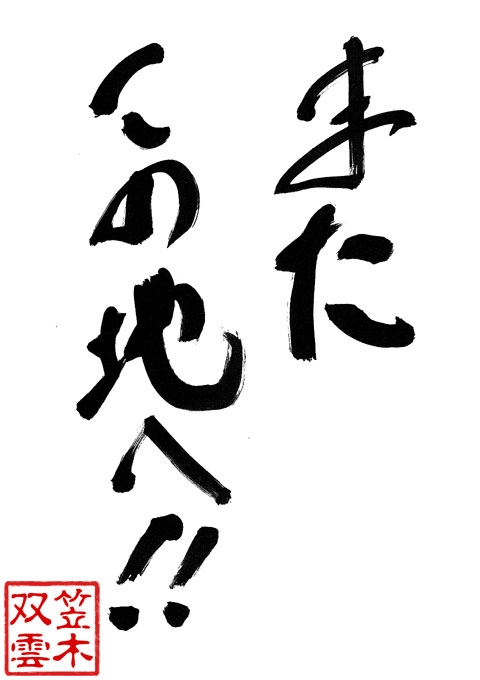 来た
この地へ!!
笠木
双雲